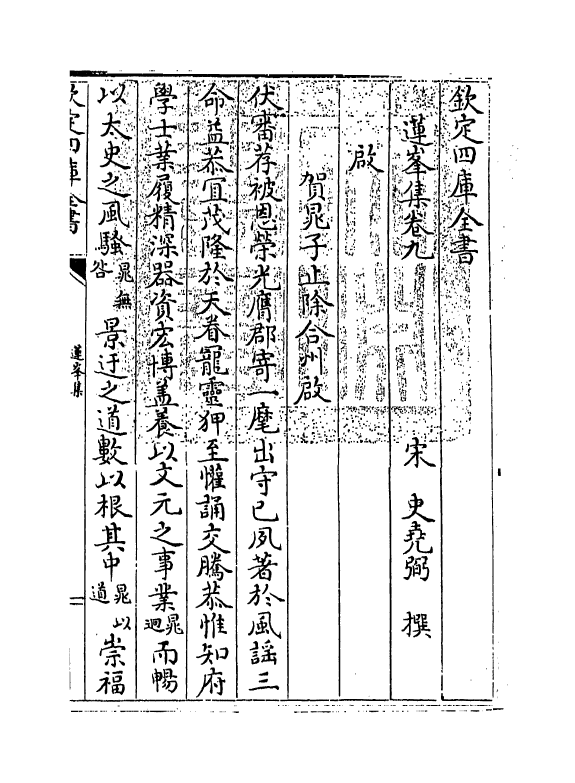 欽定四庫全書
蓮峯集卷九
宋 史堯弼 撰
啟
賀晁子止除合州啟
伏審荐被恩榮光膺郡寄一麾出守已夙著於風謡三
命益恭宜茂隆於天眷寵靈狎至懽誦交騰恭惟知府
學士業履精深器資宏博盖養以文元之事業晁迥而暢
以太史之風騷晁無咎景迂之道數以根其中晁以道崇福
欽定四庫全書
蓮峯集